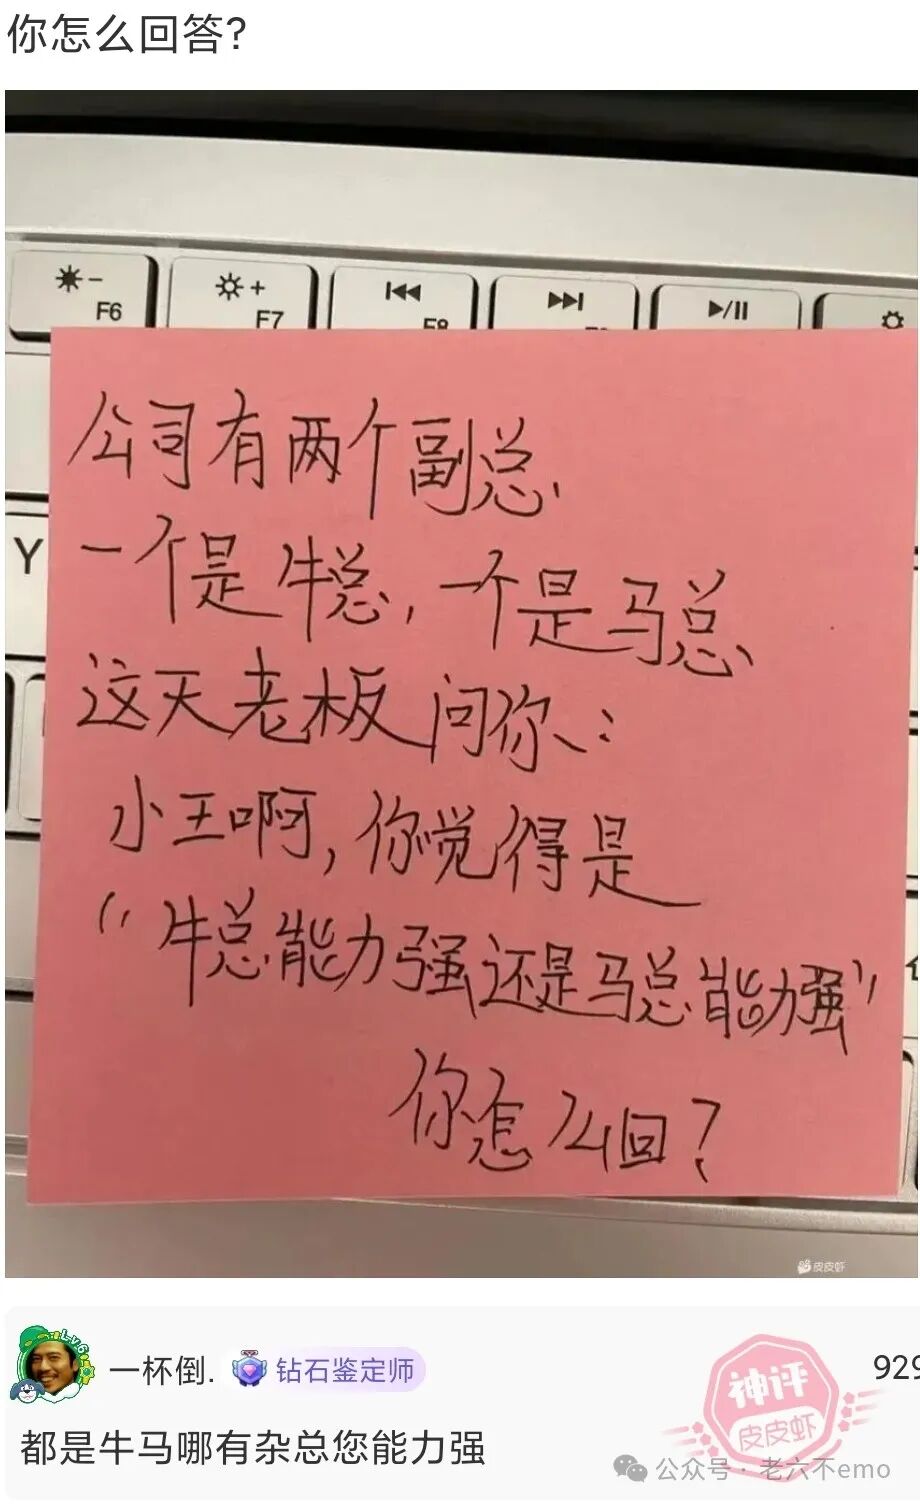 你怎么回答?
F6
F7
F8
公司有两个副总
一个是牛总,一个是马总
Y
这天老板问你:
小王啊,你觉得是
“牛总能力强还是马总能力强”
你怎么回?
皮皮虾
Lv.6
一杯倒. 钻石鉴定师
929
神评
皮皮虾
都是牛马哪有杂总您能力强
公众号·老六不emo